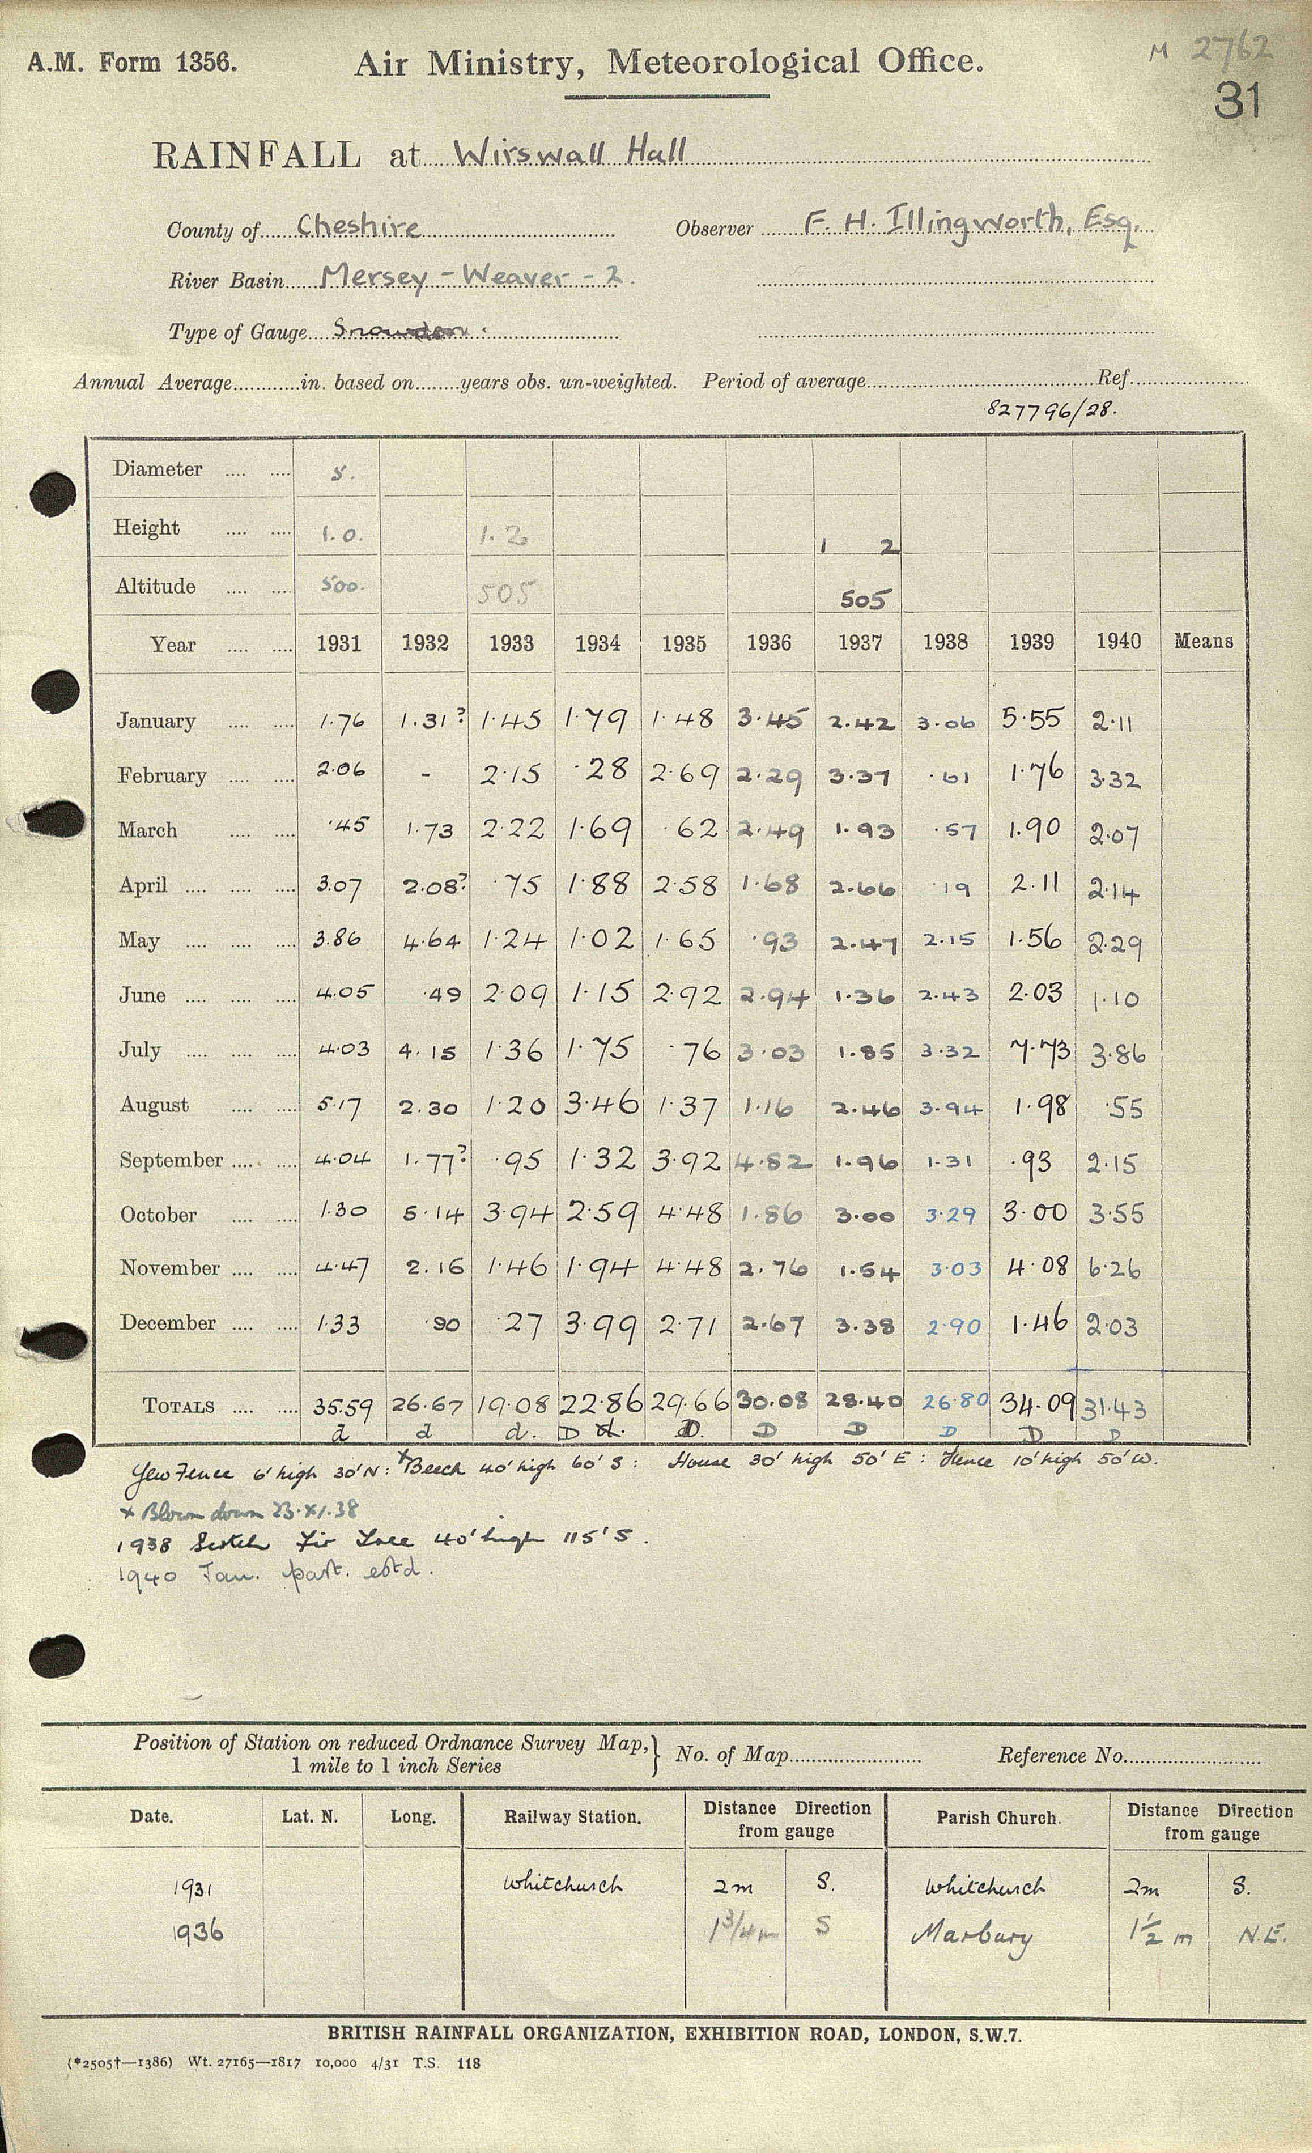 A.M. Form 1356. Air Ministry, Meteorological Office. M 2762
31
RAINFALL at Wirswall Hall
County of Cheshire Observer F. H. Illingworth, Esq.
River Basin Mersey - Weaver - 2.
Type of Gauge Snowdon.
Annual Average in. based on years obs. un-weighted. Period of average Ref.
827796/28.
Diameter 5.
Height 1.0. 1.2 1 2
Altitude 500. 505 505
Year 1931 1932 1933 1934 1935 1936 1937 1938 1939 1940 Means
January 1.76 1.31? 1.45 1.79 1.48 3.45 2.42 3.06 5.55 2.11
February 2.06 - 2.15 .28 2.69 2.29 3.37 .61 1.76 3.32
March .45 1.73 2.22 1.69 .62 2.49 1.93 .57 1.90 2.07
April 3.07 2.08? .75 1.88 2.58 1.68 2.66 .19 2.11 2.14
May 3.86 4.64 1.24 1.02 1.65 .93 2.47 2.15 1.56 2.29
June 4.05 .49 2.09 1.15 2.92 2.94 1.36 2.43 2.03 1.10
July 4.03 4.15 1.36 1.75 .76 3.03 1.85 3.32 7.73 3.86
August 5.17 2.30 1.20 3.46 1.37 1.16 2.46 3.94 1.98 .55
September 4.04 1.77? .95 1.32 3.92 4.82 1.96 1.31 .93 2.15
October 1.30 5.14 3.94 2.59 4.48 1.86 3.00 3.29 3.00 3.55
November 4.47 2.16 1.46 1.94 4.48 2.76 1.54 3.03 4.08 6.26
December 1.33 .90 .27 3.99 2.71 2.67 3.38 2.90 1.46 2.03
TOTALS 35.59 26.67 19.08 22.86 29.66 30.08 28.40 26.80 34.09 31.43
d d d. D d. D. D D D D D
Yew Fence 6' high 30' N: *Beech 40' high 60' S: House 30' high 50' E: Fence 10' high 50' W.
x Blown down 23.XI.38
1938 Scotch Fir Tree 40' high 115' S.
1940 Jan. part. estd.
Position of Station on reduced Ordnance Survey Map, } No. of Map Reference No.
1 mile to 1 inch Series
Date. Lat. N. Long. Railway Station. Distance Direction from gauge Parish Church. Distance Direction from gauge
1931 Whitchurch 2m S. Whitchurch 2m S.
1936 1 3/4 m S Marbury 1 1/2 m N.E.
BRITISH RAINFALL ORGANIZATION, EXHIBITION ROAD, LONDON, S.W.7.
(*2505†—1386) Wt. 27165—1817 10,000 4/31 T.S. 118